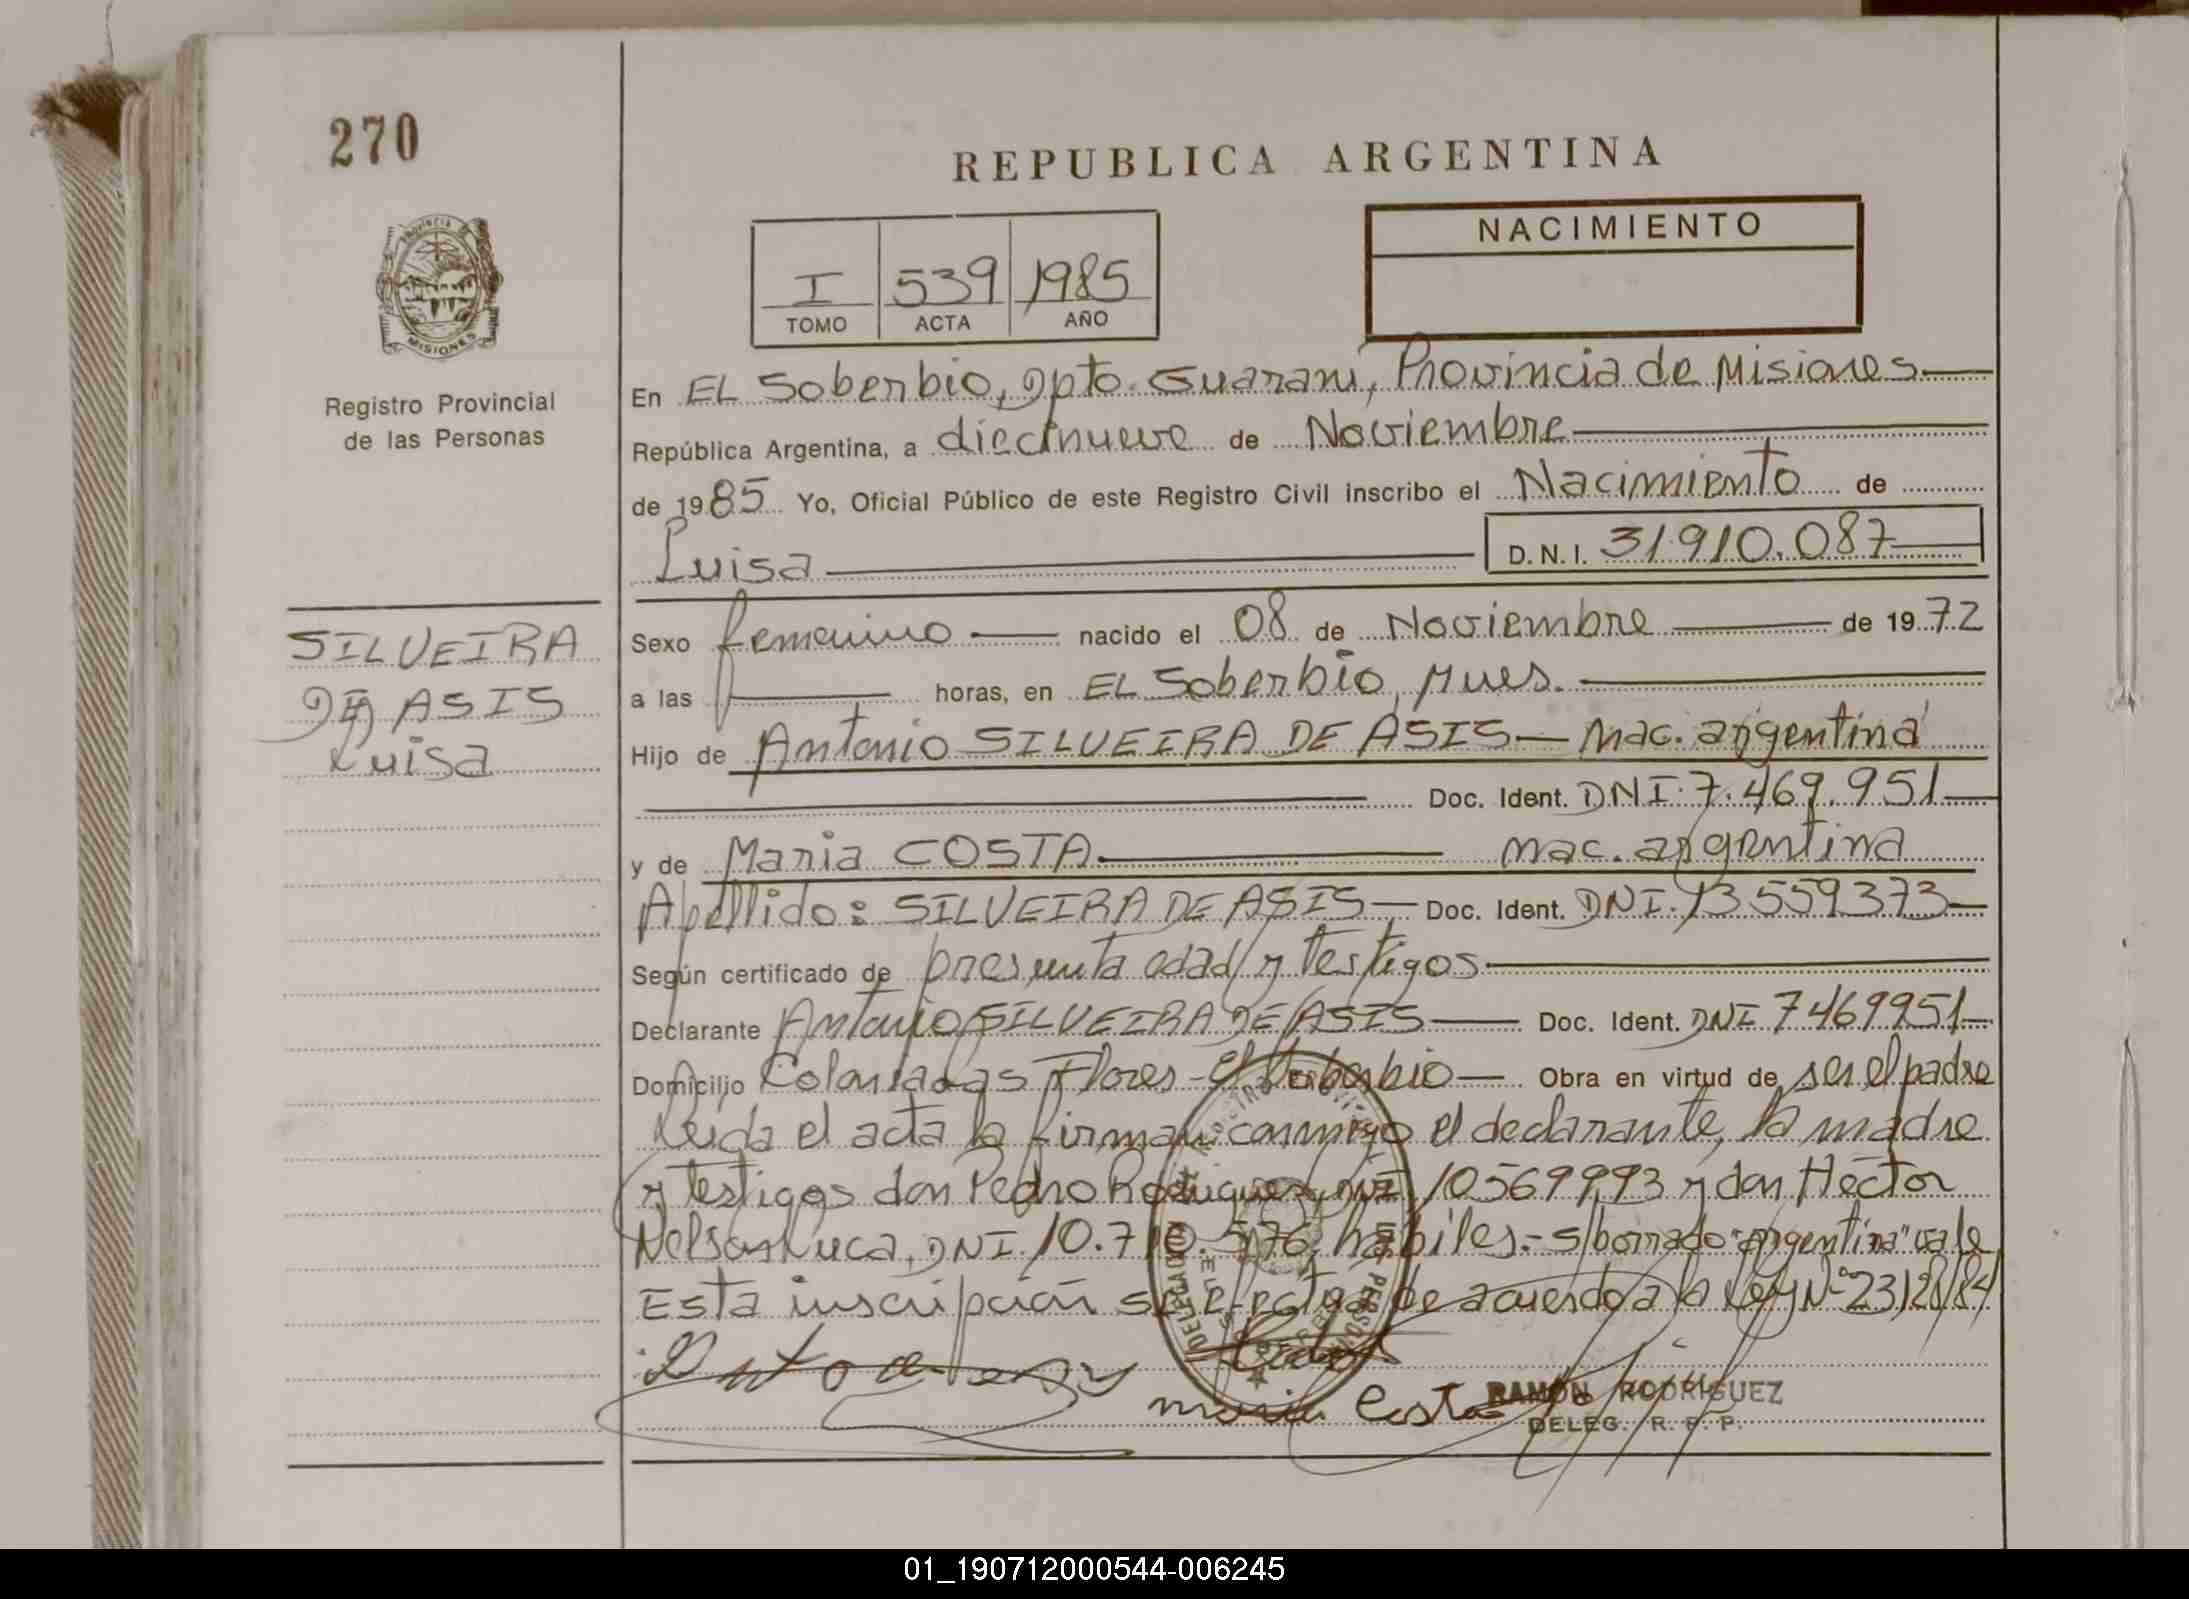 270
REPUBLICA ARGENTINA
PROVINCIA DE
MISIONES
Registro Provincial
de las Personas
I 539 1985
TOMO ACTA AÑO
NACIMIENTO
En EL Soberbio, Dpto. Guarani, Provincia de Misiones
República Argentina, a diecinueve de Noviembre
de 1985 Yo, Oficial Público de este Registro Civil inscribo el Nacimiento de
Luisa D.N.I. 31.910.087
SILVEIRA
DE ASIS
Luisa
Sexo femenino nacido el 08 de Noviembre de 1972
a las horas, en EL Soberbio, Mnes.
Hijo de Antonio SILVEIRA DE ASIS — nac. argentina
Doc. Ident. DNI. 7.469.951
y de Maria COSTA nac. argentina
Apellido: SILVEIRA DE ASIS — Doc. Ident. DNI. 13.559373
Según certificado de presunta edad y testigos
Declarante Antonio SILVEIRA DE ASIS Doc. Ident. DNI 7469951
Domicilio Colonia Flores - El Soberbio — Obra en virtud de ser el padre
Leida el acta la firman conmigo el declarante, la madre
y testigos don Pedro Rodriguez, DNI 10569993 y don Héctor
Nelson DNI. 10.710.576, hábiles.- s/borrado "argentina" vale
Esta inscripción se efectúa de acuerdo a la Ley Nº 23128/84
maria Costa
RAMÓN RODRIGUEZ
DELEG. R. P. P.
01_190712000544-006245